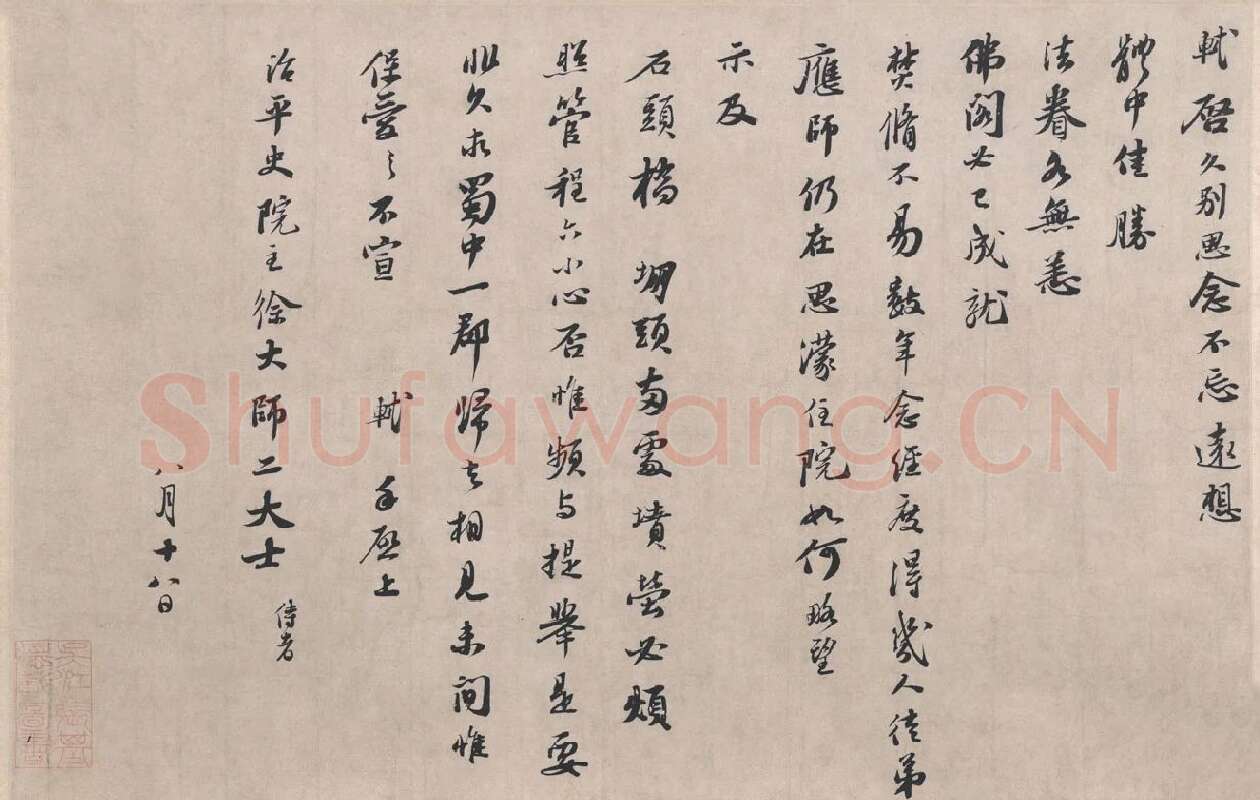 軾啓久別思念不忘遠想
體中佳勝
法眷各無恙
佛閣必已成就
焚脩不易數年念經度得幾人徒弟
應師仍在思濛住院如何略望
示及
石頭橋堋頭兩處墳塋必煩
照管程六小心否惟頻與提舉是要
非久求蜀中一郡歸去相見未間惟
保愛之不宣 軾手啟上
治平史院主徐大師二大士 侍者
八月十八日
Shufawang.CN